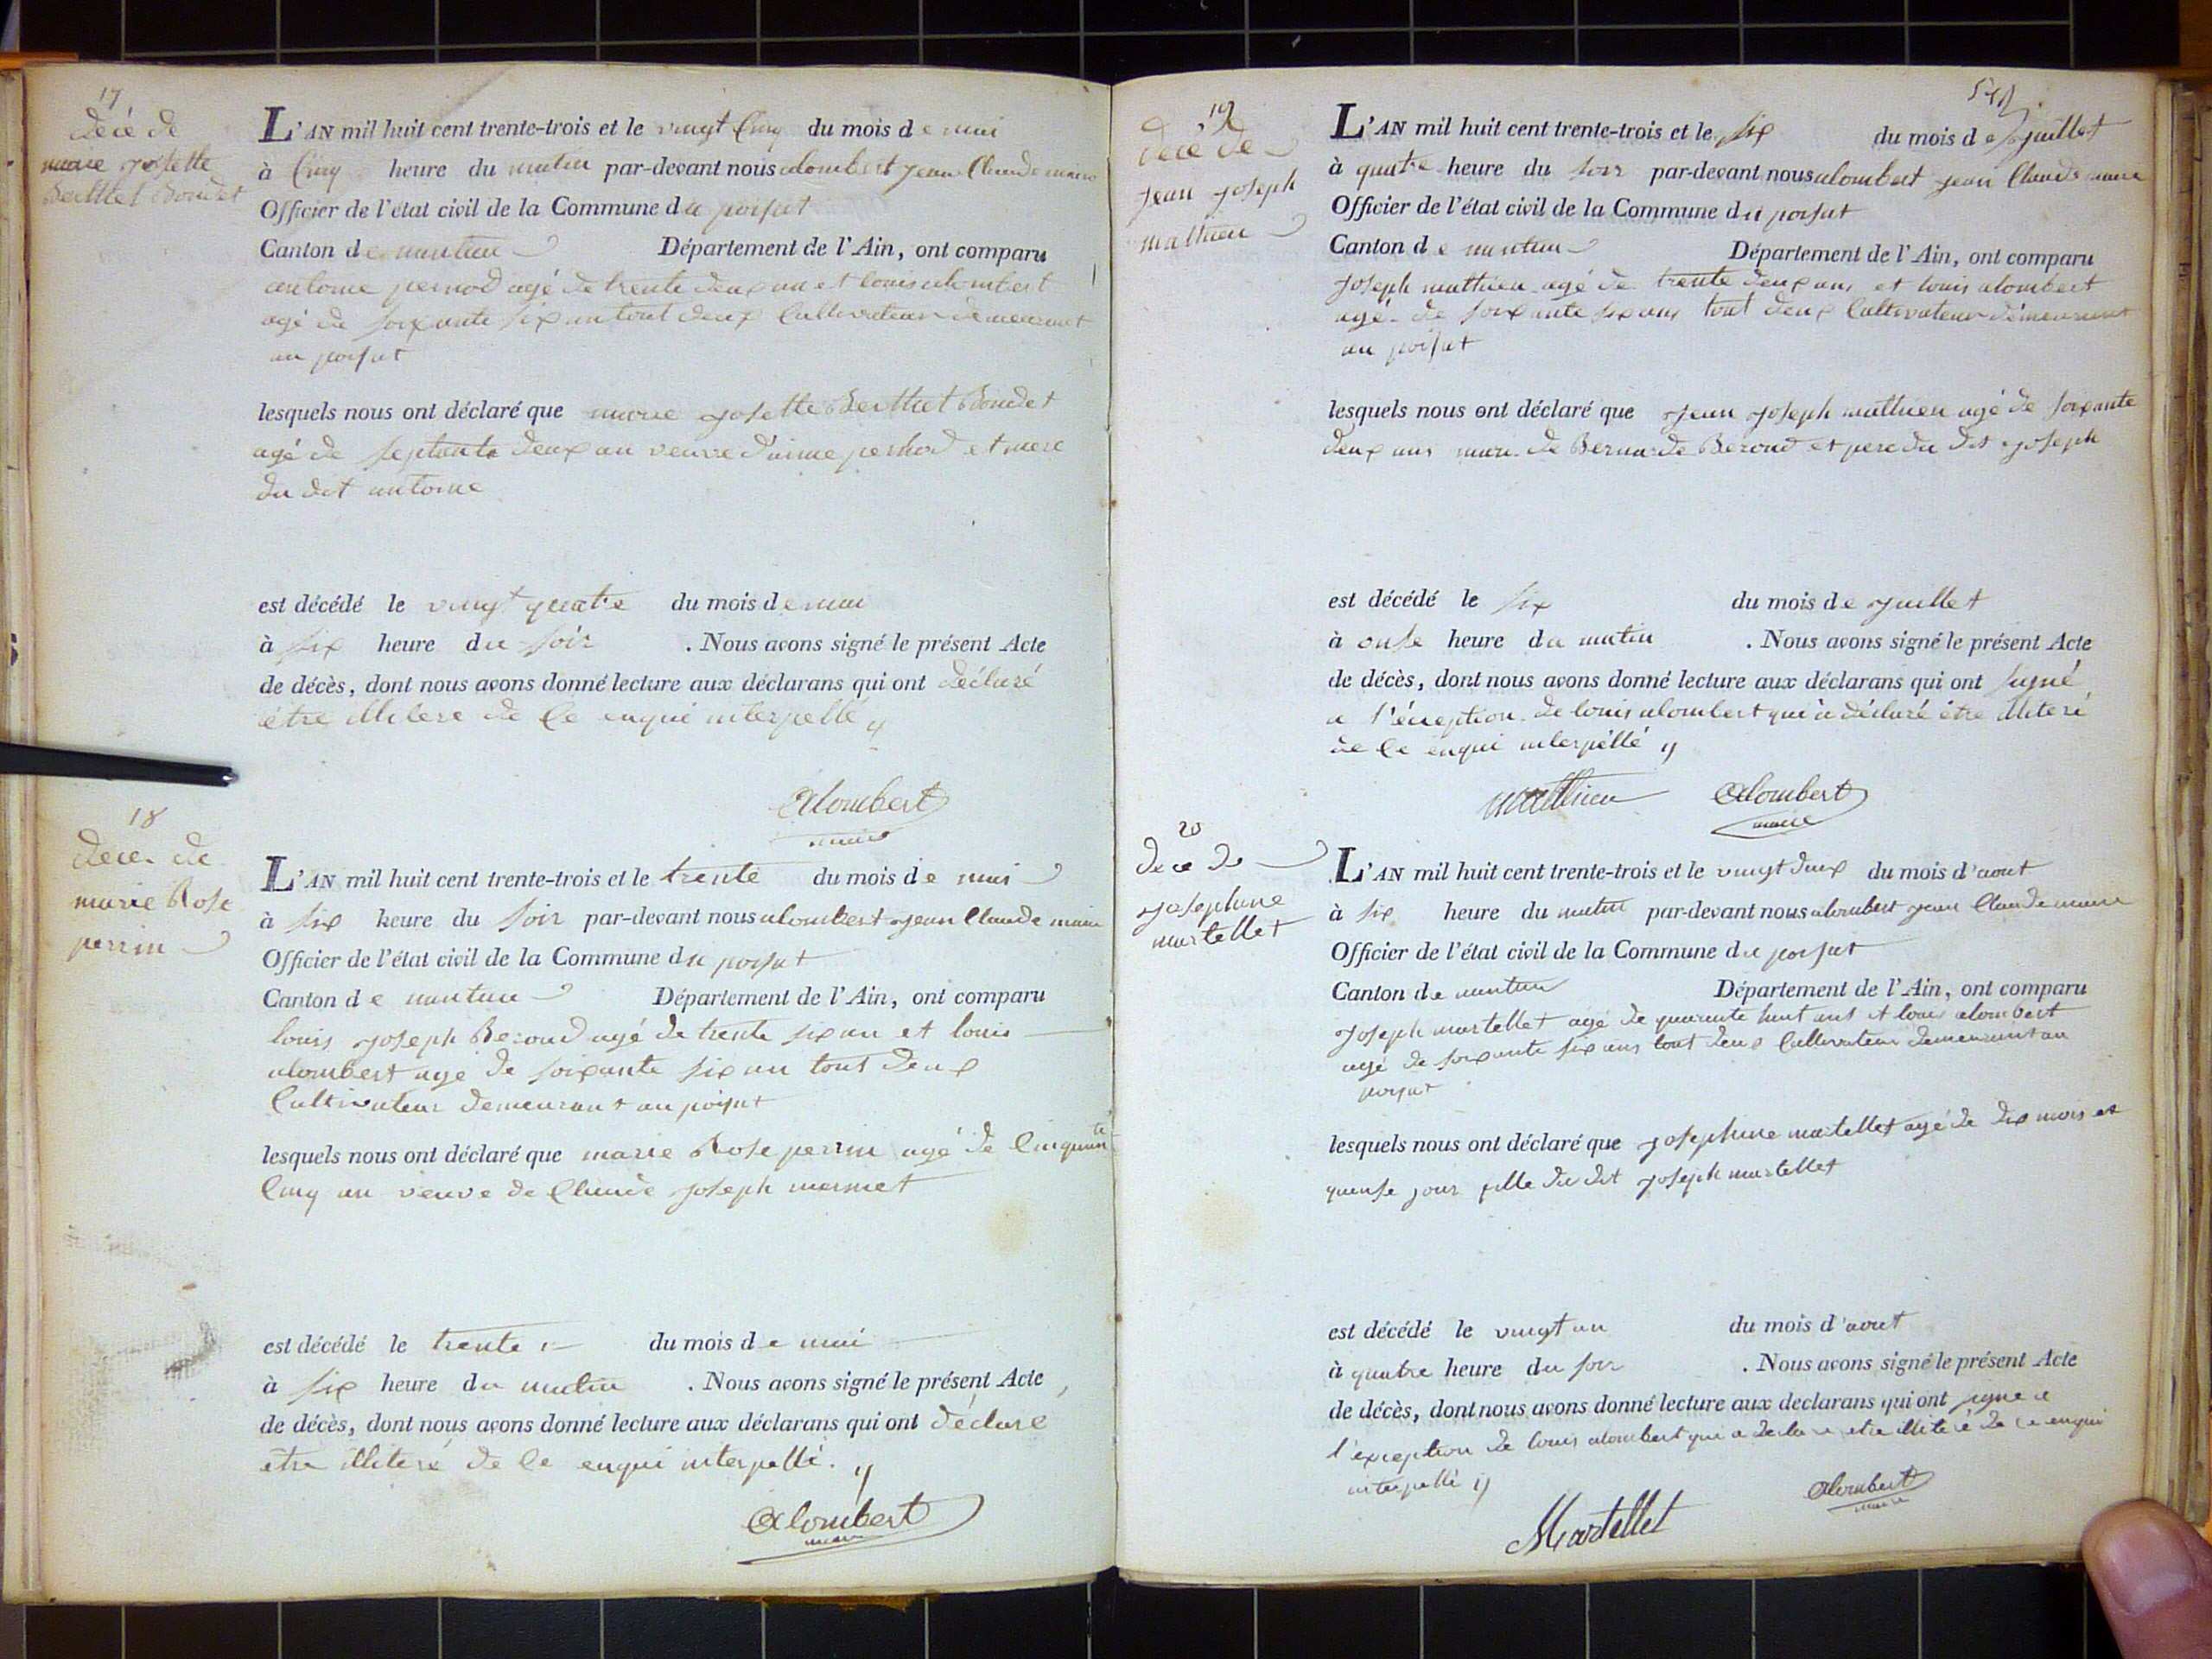 17
Décé de
marie josette
Berthet Bondet
L'AN mil huit cent trente-trois et le vingt Cinq du mois de mai
à Cinq heure du matin par-devant nous alombert jean Claude maire
Officier de l'état civil de la Commune du poisat
Canton de nantua Département de l'Ain, ont comparu
antoine pernod agé de trente deux an et louis alombert
agé de soixante six an tout deux Cultivateur demeurant
au poisat
lesquels nous ont déclaré que marie josette Berthet Bondet
agé de septante deux an veuve d'aimé pernod et mere
du dit antoine
est décédé le vingt quatre du mois de mai
à six heure du soir . Nous avons signé le présent Acte
de décès, dont nous avons donné lecture aux déclarans qui ont déclaré
être illiteré de Ce enqui interpellé
Alombert
maire
18
déce de
marie Rose
perrin
L'AN mil huit cent trente-trois et le trente du mois de mai
à six heure du soir par-devant nous alombert jean Claude maire
Officier de l'état civil de la Commune du poisat
Canton de nantua Département de l'Ain, ont comparu
louis joseph Beroud agé de trente six an et louis
alombert agé de soixante six an tout deux
Cultivateur demeurant au poisat
lesquels nous ont déclaré que marie Rose perrin agé de Cinquante
Cinq an veuve de Claude joseph mermet
est décédé le trente du mois de mai
à six heure du matin . Nous avons signé le présent Acte
de décès, dont nous avons donné lecture aux déclarans qui ont déclaré
etre illiteré de Ce enqui interpellé.
Alombert
maire
19
décé de
jean joseph
mathieu
L'AN mil huit cent trente-trois et le six du mois de juillet
à quatre heure du soir par-devant nous alombert jean Claude maire
Officier de l'état civil de la Commune du poisat
Canton de nantua Département de l'Ain, ont comparu
joseph mathieu agé de trente deux ans et louis alombert
agé de soixante six ans tout deux Cultivateur démeurant
au poisat
lesquels nous ont déclaré que jean joseph mathieu agé de soixante
deux ans mari de Bernarde Beroud et pere du dit joseph
est décédé le six du mois de juillet
à onse heure du matin . Nous avons signé le présent Acte
de décès, dont nous avons donné lecture aux déclarans qui ont signé
a l'éxception de louis alombert qui a déclaré être illiteré
de Ce enqui interpéllé
mathieu Alombert
maire
20
Decé de
joséphine
martellet
L'AN mil huit cent trente-trois et le vingt deux du mois d'aout
à six heure du matin par-devant nous alombert jean Claude maire
Officier de l'état civil de la Commune du poisat
Canton de nantua Département de l'Ain, ont comparu
joseph martellet agé de quarante huit ans et louis alombert
agé de soixante six ans tout deux Cultivateur demeurant au
poisat
lesquels nous ont déclaré que josephine martellet agé de dix mois et
quinse jour fille du dit joseph martellet
est décédé le vingt un du mois d'aout
à quatre heure du soir . Nous avons signé le présent Acte
de décès, dont nous avons donné lecture aux déclarans qui ont signé a
l'exception de louis alombert qui a declaré etre illiteré de ce enqui
interpellé
Martellet Alombert
maire